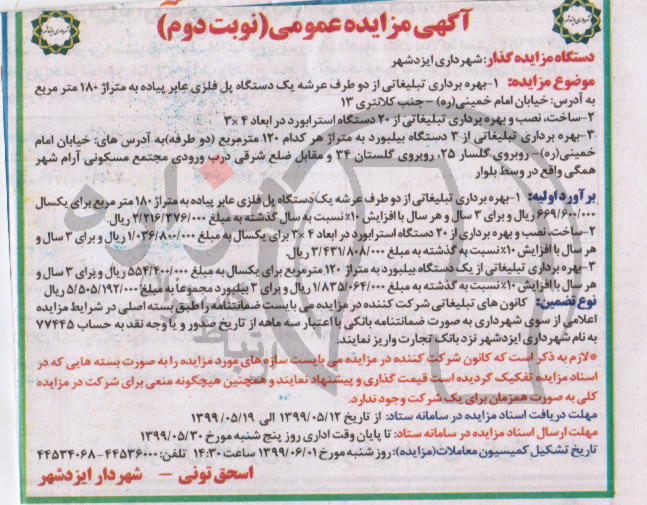 آگهی مزایده عمومی (نوبت دوم)
دستگاه مزایده گذار: شهرداری ایزدشهر
موضوع مزایده: ۱-بهره برداری تبلیغاتی از دو طرف عرشه یک دستگاه پل فلزی عابر پیاده به متراژ ۱۸۰ متر مربع
به آدرس: خیابان امام خمینی(ره) – جنب کلانتری ۱۳
۲-ساخت، نصب و بهره برداری تبلیغاتی از ۲۰ دستگاه استرابورد در ابعاد ۴×۳
۳-بهره برداری تبلیغاتی از ۳ دستگاه بیلبورد به متراژ هر کدام ۱۲۰ مترمربع (دو طرفه) به آدرس های: خیابان امام
خمینی(ره) – روبروی گلسار ۲۵، روبروی گلستان ۳۴ و مقابل ضلع شرقی درب ورودی مجتمع مسکونی آرام شهر
همگی واقع در وسط بلوار
برآورد اولیه: ۱-بهره برداری تبلیغاتی از دو طرف عرشه یک دستگاه پل فلزی عابر پیاده به متراژ ۱۸۰ متر مربع برای یکسال
۶۶۹/۶۰۰/۰۰۰ ریال و برای ۳ سال و هر سال با افزایش ۱۰٪ نسبت به سال گذشته به مبلغ ۲/۲۱۶/۳۷۶/۰۰۰ ریال.
۲-ساخت، نصب و بهره برداری از ۲۰ دستگاه استرابورد در ابعاد ۴×۳ برای یکسال به مبلغ ۱/۰۳۶/۸۰۰/۰۰۰ ریال و برای ۳ سال و
هر سال با افزایش ۱۰٪ نسبت به گذشته به مبلغ ۳/۴۳۱/۸۰۸/۰۰۰ ریال.
۳-بهره برداری تبلیغاتی از یک دستگاه بیلبورد به متراژ ۱۲۰ مترمربع برای یکسال به مبلغ ۵۵۴/۴۰۰/۰۰۰ ریال و برای ۳ سال و
هر سال با افزایش ۱۰٪ نسبت به گذشته به مبلغ ۱/۸۳۵/۰۶۴/۰۰۰ ریال و برای ۳ بیلبورد مجموعا به مبلغ ۵/۵۰۵/۱۹۲/۰۰۰ ریال
نوع تضمین: کانون های تبلیغاتی شرکت کننده در مزایده می بایست ضمانتنامه را طبق بسته اصلی در شرایط مزایده
اعلامی از سوی شهرداری به صورت ضمانتنامه بانکی با اعتبار سه ماهه از تاریخ صدور و یا وجه نقد به حساب ۷۷۴۴۵
به نام شهرداری ایزدشهر نزد بانک تجارت واریز نمایند.
*لازم به ذکر است که کانون شرکت کننده در مزایده می بایست سازه های مورد مزایده را به صورت بسته هایی که در
اسناد مزایده تفکیک گردیده است قیمت گذاری و پیشنهاد نمایند و همچنین هیچگونه منعی برای شرکت در مزایده
کلی به صورت همزمان برای یک شرکت وجود ندارد.
مهلت دریافت اسناد مزایده در سامانه ستاد: از تاریخ ۱۳۹۹/۰۵/۱۲ الی ۱۳۹۹/۰۵/۱۹
مهلت ارسال اسناد مزایده در سامانه ستاد: تا پایان وقت اداری روز پنج شنبه مورخ ۱۳۹۹/۰۵/۳۰
تاریخ تشکیل کمیسیون معاملات(مزایده): روز شنبه مورخ ۱۳۹۹/۰۶/۰۱ ساعت ۱۴:۳۰ تلفن: ۴۴۵۳۶۰۰۰-۴۴۵۳۴۰۶۸
اسحق تونی – شهردار ایزدشهر